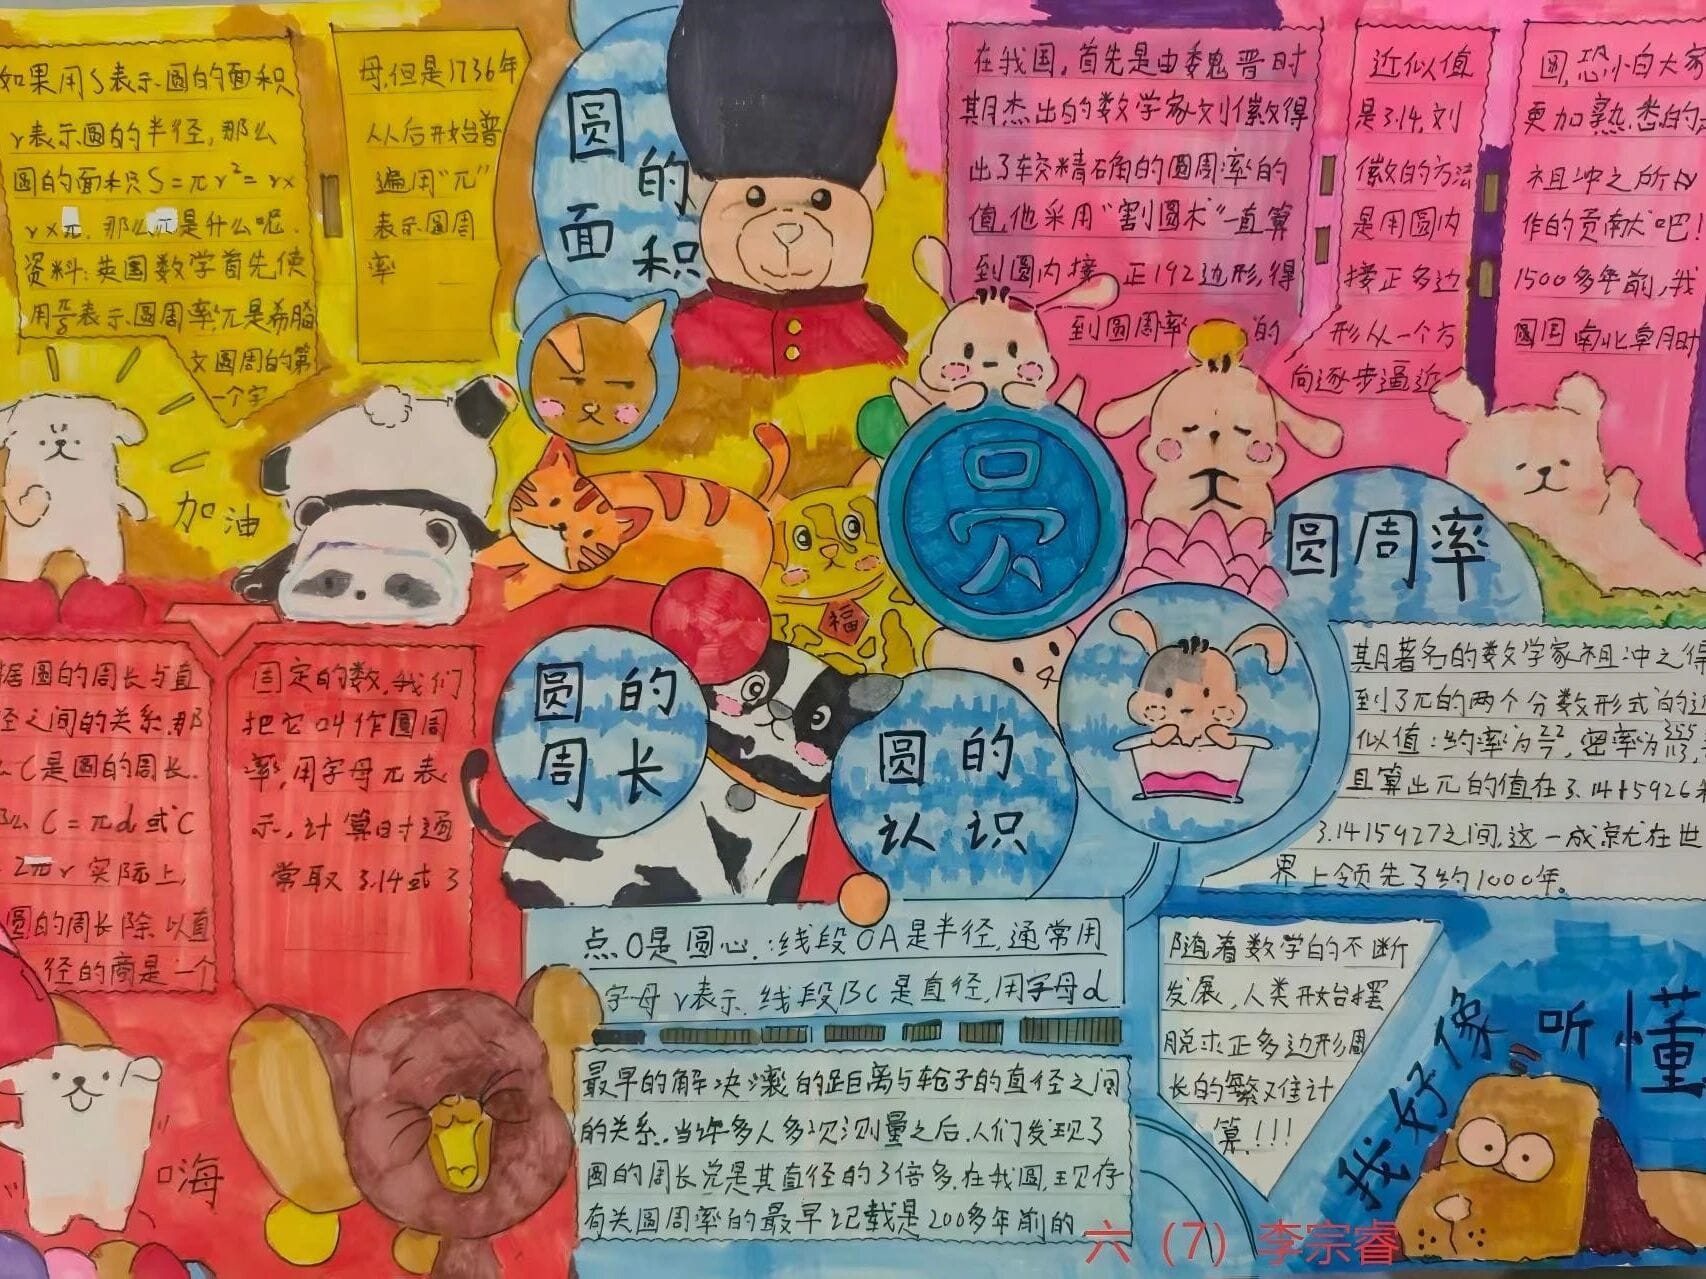 如果用S表示圆的面积
r表示圆的半径，那么
圆的面积S=πr²=r×
r×π. 那么π是什么呢.
资料：英国数学首先使
表示圆周率,π是希腊
文圆周的第
一个字
母,但是1736年
以后开始普
遍用“π”
表示圆周
率
圆的
面积
在我国，首先是由魏晋时
期杰出的数学家刘徽得
出了较精确的圆周率的
值,他采用“割圆术”一直算
到圆内接 正192边形,得
到圆周率 的
近似值
是3.14.刘
徽的方法
是用圆内
接正多边
形从一个方
向逐步逼近
圆,恐小白大家
更加熟悉的
祖冲之所
作的贡献吧!
1500多年前,我
圆周 南北朝时
期著名的数学家祖冲之得
到了π的两个分数形式的近
似值：约率为22/7，密率为355/113,
且算出π的值在3.1415926和
3.1415927之间,这一成就在世
界上领先了约1000年。
加油
福
圆
圆周率
据圆的周长与直
径之间的关系.那
么C是圆的周长.
那么C=πd或C
=2πr 实际上,
圆的周长除以直
径的商是一个
固定的数,我们
把它叫作圆周
率,用字母π表
示,计算时通
常取3.14或3
圆的
周长
圆的
认识
点O是圆心.:线段OA是半径,通常用
字母r表示.线段BC是直径,用字母d
最早的解决滚的距离与轮子的直径之间
的关系.当年多人多次测量之后.人们发现了
圆的周长总是其直径的3倍多.在我国,现存
有关圆周率的最早记载是2000多年前的
随着数学的不断
发展，人类开始摆
脱求正多边形周
长的繁难计
算!!!
我好像听懂
嗨
六（7）李宗睿